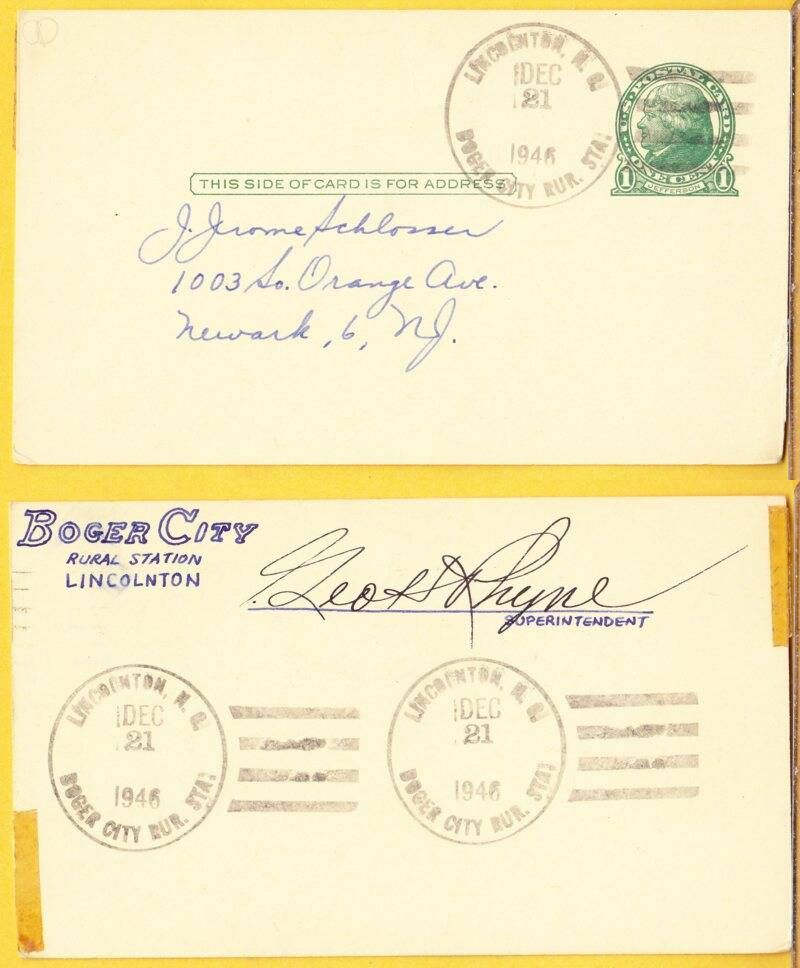 LINCOLNTON, N. C.
DEC
21
1946
BOGER CITY RUR. STA.
U.S. POSTAL CARD
1 ONE CENT 1
JEFFERSON
THIS SIDE OF CARD IS FOR ADDRESS
J. Jerome Schlosser
1003 So. Orange Ave.
Newark, 6, NJ.
BOGER CITY
RURAL STATION
LINCOLNTON
Geo H Rhyne
SUPERINTENDENT
LINCOLNTON, N. C.
DEC
21
1946
BOGER CITY RUR. STA.
LINCOLNTON, N. C.
DEC
21
1946
BOGER CITY RUR. STA.